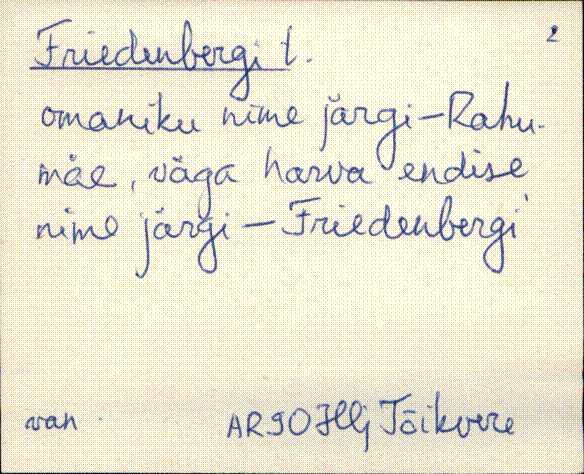 2
Friedenbergi t.
omaniku nime järgi – Rahu-
mäe, väga harva endise
nime järgi – Friedenbergi
van
AR90 Illj Tõikvere